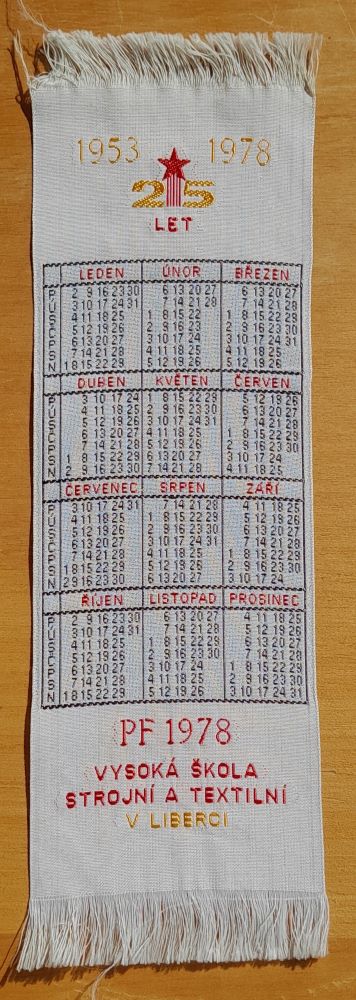 1953 1978
25
LET
LEDEN ÚNOR BŘEZEN
P 2 9 16 23 30 6 13 20 27 6 13 20 27
U 3 10 17 24 31 7 14 21 28 7 14 21 28
S 4 11 18 25 1 8 15 22 1 8 15 22 29
Č 5 12 19 26 2 9 16 23 2 9 16 23 30
P 6 13 20 27 3 10 17 24 3 10 17 24 31
S 7 14 21 28 4 11 18 25 4 11 18 25
N 1 8 15 22 29 5 12 19 26 5 12 19 26
DUBEN KVĚTEN ČERVEN
P 3 10 17 24 1 8 15 22 29 5 12 19 26
U 4 11 18 25 2 9 16 23 30 6 13 20 27
S 5 12 19 26 3 10 17 24 31 7 14 21 28
Č 6 13 20 27 4 11 18 25 1 8 15 22 29
P 7 14 21 28 5 12 19 26 2 9 16 23 30
S 1 8 15 22 29 6 13 20 27 3 10 17 24
N 2 9 16 23 30 7 14 21 28 4 11 18 25
ČERVENEC SRPEN ZÁŘÍ
P 3 10 17 24 31 7 14 21 28 4 11 18 25
U 4 11 18 25 1 8 15 22 29 5 12 19 26
S 5 12 19 26 2 9 16 23 30 6 13 20 27
Č 6 13 20 27 3 10 17 24 31 7 14 21 28
P 7 14 21 28 4 11 18 25 1 8 15 22 29
S 1 8 15 22 29 5 12 19 26 2 9 16 23 30
N 2 9 16 23 30 6 13 20 27 3 10 17 24
ŘÍJEN LISTOPAD PROSINEC
P 2 9 16 23 30 6 13 20 27 4 11 18 25
U 3 10 17 24 31 7 14 21 28 5 12 19 26
S 4 11 18 25 1 8 15 22 29 6 13 20 27
Č 5 12 19 26 2 9 16 23 30 7 14 21 28
P 6 13 20 27 3 10 17 24 1 8 15 22 29
S 7 14 21 28 4 11 18 25 2 9 16 23 30
N 1 8 15 22 29 5 12 19 26 3 10 17 24 31
PF 1978
VYSOKÁ ŠKOLA
STROJNÍ A TEXTILNÍ
V LIBERCI